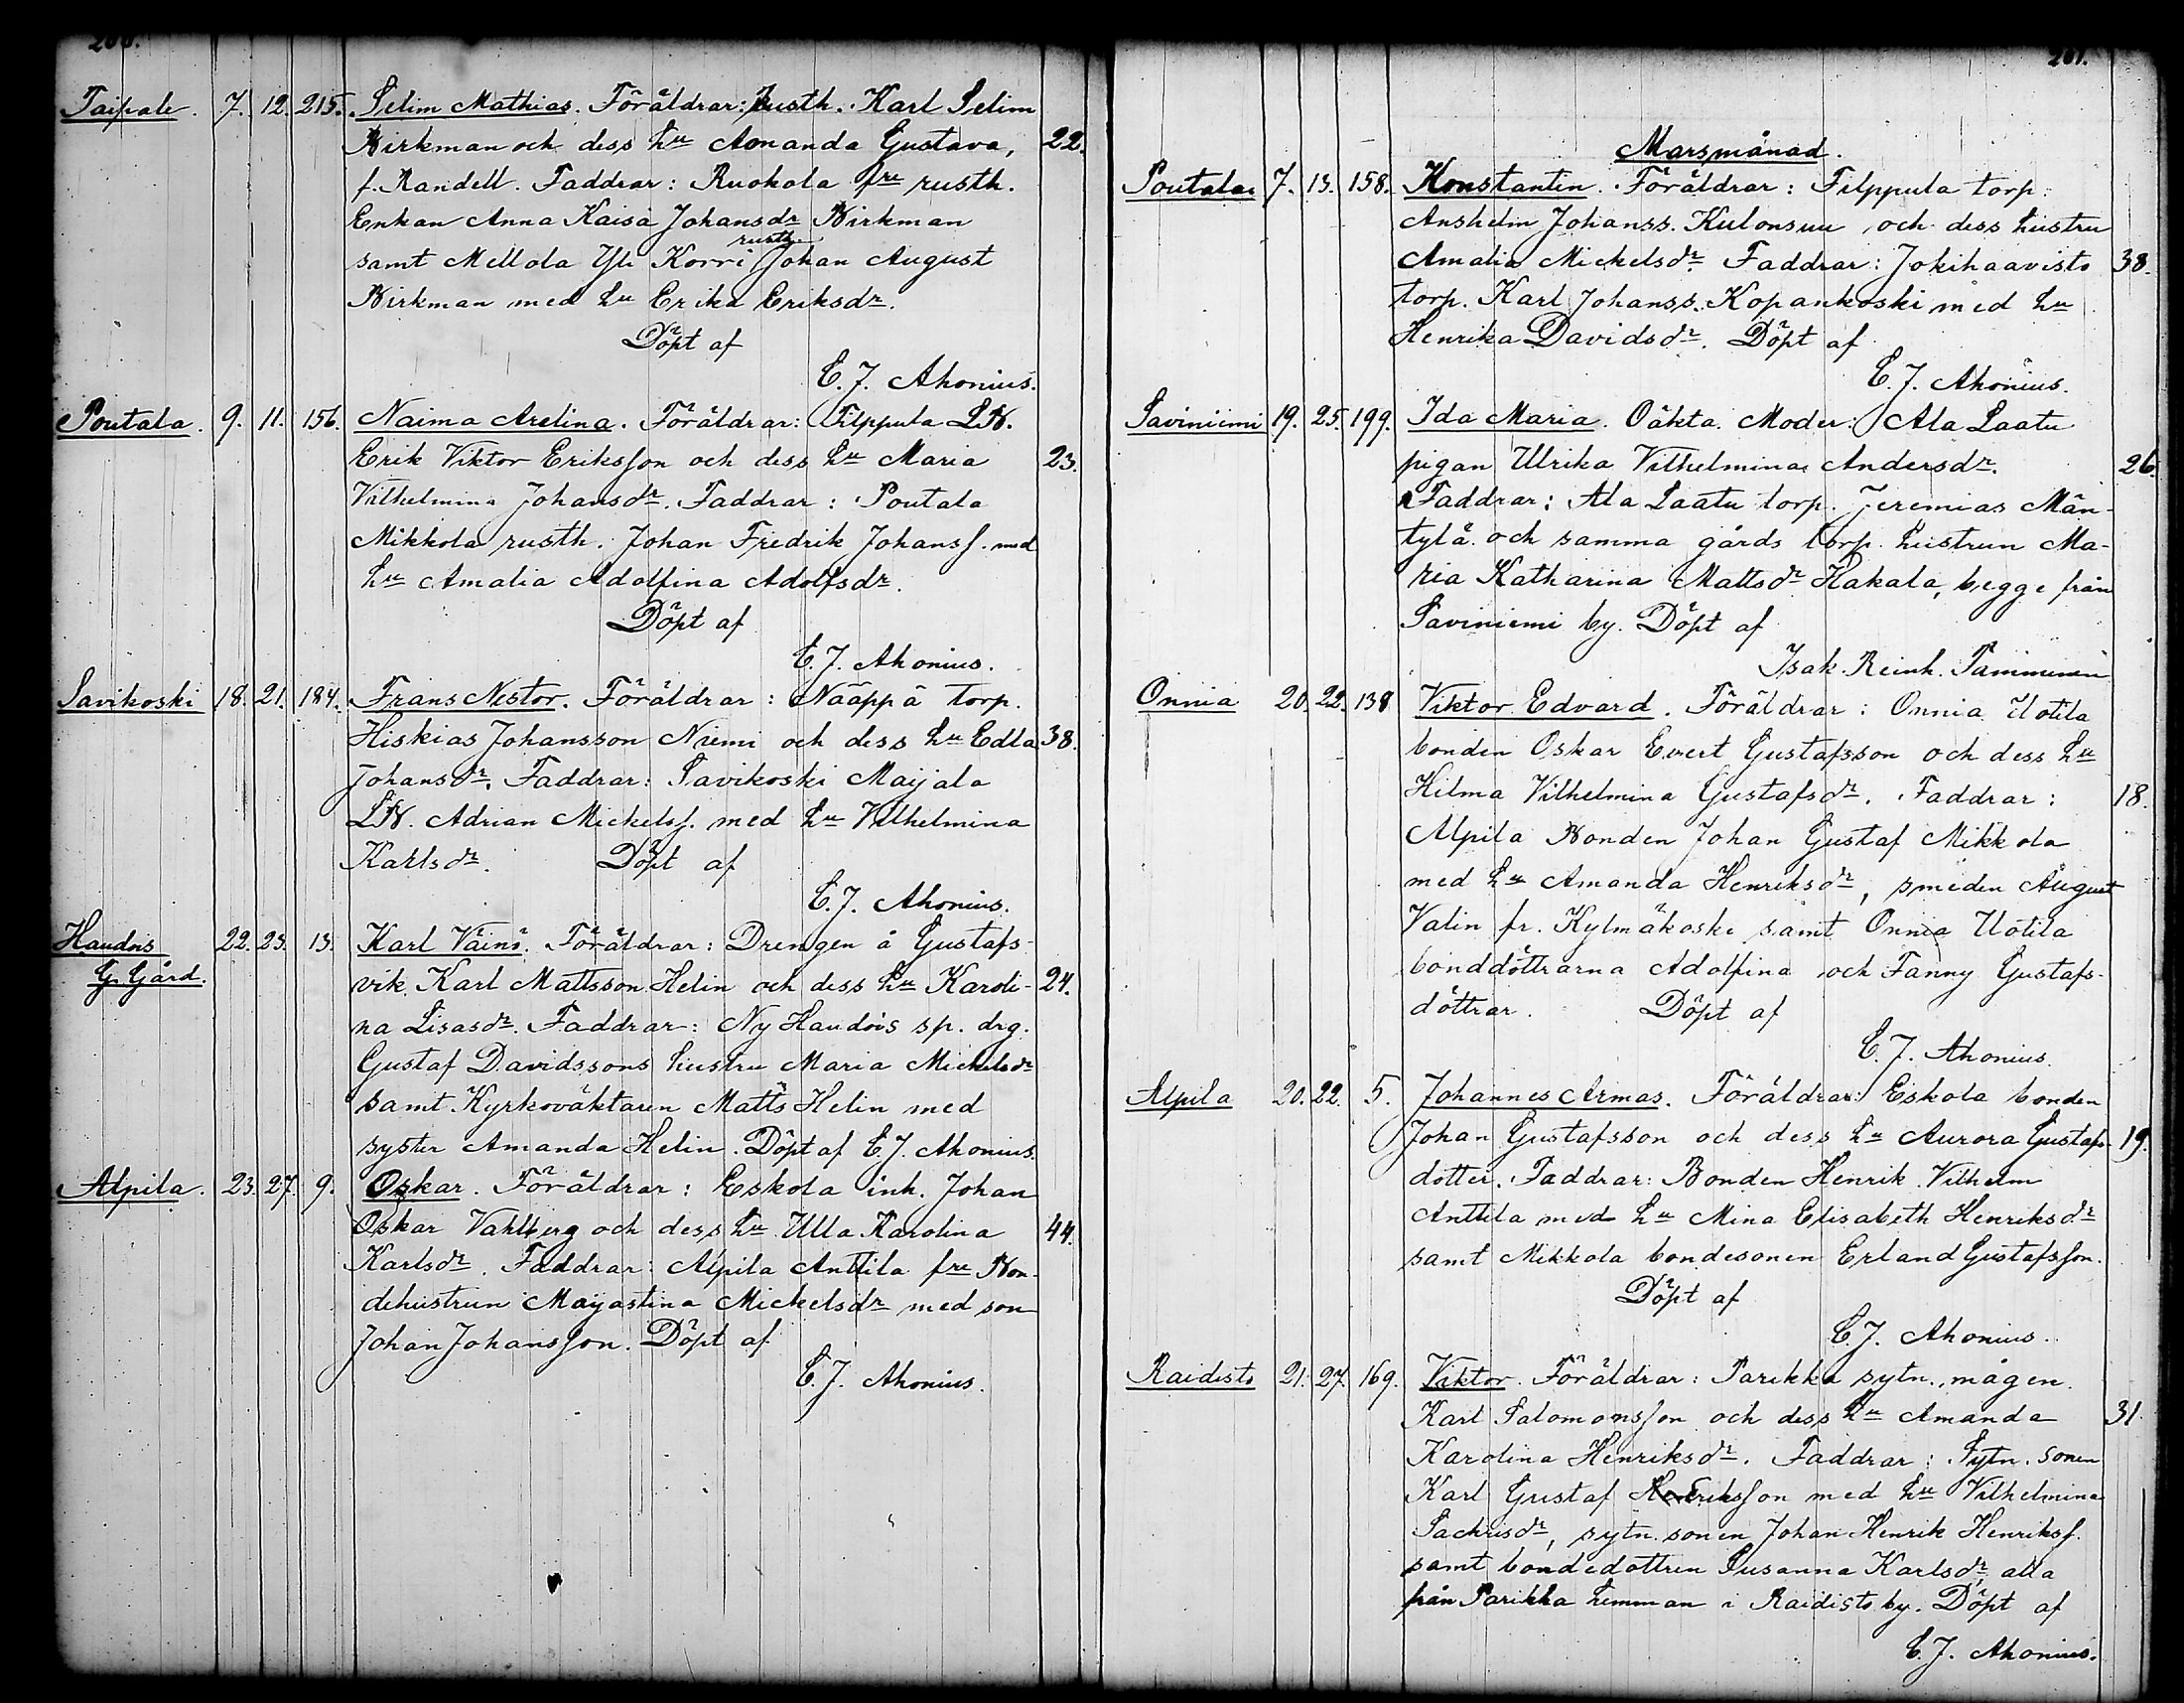 Taipale. 7. 12. 215. Selim Mathias. Föräldrar: rusth. Karl Selim
Birkman och dess hu Amanda Gustava, 22.
f. Randell. Faddrar: Ruokola fre rusth.
Enkan Anna Kaisa Johansdr Birkman
rusth.
samt Mellola Yli Korri Johan August
Birkman med hu Erika Eriksdr.
Döpt af
E. J. Ahonius.
Poutala. 9. 11. 156. Naima Arelina. Föräldrar: Filppula LB.
Erik Viktor Eriksson och dess hu Maria 23.
Vilhelmina Johansdr. Faddrar: Poutala
Mikkola rusth. Johan Fredrik Johanss. med
hu Amalia Adolfina Adolfsdr.
Döpt af
E. J. Ahonius.
Savikoski 18. 21. 184. Frans Nestor. Föräldrar: Nääppä torp.
Hiskias Johansson Niemi och dess hu Edla 38.
Johansdr. Faddrar: Savikoski Maijala
LB. Adrian Mickelss. med hu Vilhelmina
Karlsdr. Döpt af
E. J. Ahonius.
Haudois 22. 23. 13. Karl Väinö. Föräldrar: Drengen å Gustafs-
G. Gård. vik Karl Mattsson Helin och dess hu Karoli- 24.
na Lisasdr. Faddrar: Ny Haudois sp. drg.
Gustaf Davidssons hustru Maria Mickelsdr
samt Kyrkoväktaren Matts Helin med
syster Amanda Helin. Döpt af E. J. Ahonius.
Alpila. 23. 27. 9. Oskar. Föräldrar: Eskola inh. Johan
Oskar Vahlberg och dess hu Ulla Karolina 44.
Karlsdr. Faddrar: Alpila Anttila fre Bon-
dehustrun Mayastina Mickelsdr med son
Johan Johansson. Döpt af
E. J. Ahonius.
201.
Marsmånad.
Poutala 7. 13. 158. Konstantin. Föräldrar: Filppula torp.
Anshelm Johanss. Kulonsuu och dess hustru
Amalia Mickelsdr. Faddrar: Jokihaavisto 38.
torp. Karl Johanss. Kopankoski med hu
Henrika Davidsdr. Döpt af
E. J. Ahonius.
Saviniemi 19. 25. 199. Ida Maria. Oäkta. Moder: Ala Laatu
pigan Ulrika Vilhelmina Andersdr. 26.
Faddrar: Ala Laatu torp. Jeremias Män-
tylä och samma gårds torp. hustrun Ma-
ria Katharina Mattsdr Hakala, begge från
Saviniemi by. Döpt af
Isak Reinh. Tamminen
Onnia 20. 22. 138 Viktor Edvard. Föräldrar: Onnia Uotila
bonden Oskar Evert Gustafsson och dess hu
Hilma Vilhelmina Gustafsdr. Faddrar: 18.
Alpila Bonden Johan Gustaf Mikkola
med hu Amanda Henriksdr, smeden August
Valin fr. Kylmäkoski samt Onnia Uotila
bonddöttrarna Adolfina och Fanny Gustafs-
döttrar. Döpt af
E. J. Ahonius.
Alpila 20. 22. 5. Johannes Armas. Föräldrar: Eskola bonden
Johan Gustafsson och dess hu Aurora Gustafs- 19.
dotter. Faddrar: Bonden Henrik Vilhelm
Anttila med hu Mina Elisabeth Henriksdr
samt Mikkola bondesonen Erland Gustafsson.
Döpt af
E. J. Ahonius.
Raidisto 21. 27. 169. Viktor. Föräldrar: Parikka sytn. mågen
Karl Salomonsson och dess hu Amanda 31
Karolina Henriksdr. Faddrar: Sytn. sonen
Karl Gustaf Eriksson med hu Vilhelmina
Sachrisdr, sytn. sonen Johan Henrik Henrikss.
samt bondedottren Susanna Karlsdr, alla
från Parikka hemman i Raidisto by. Döpt af
E. J. Ahonius.